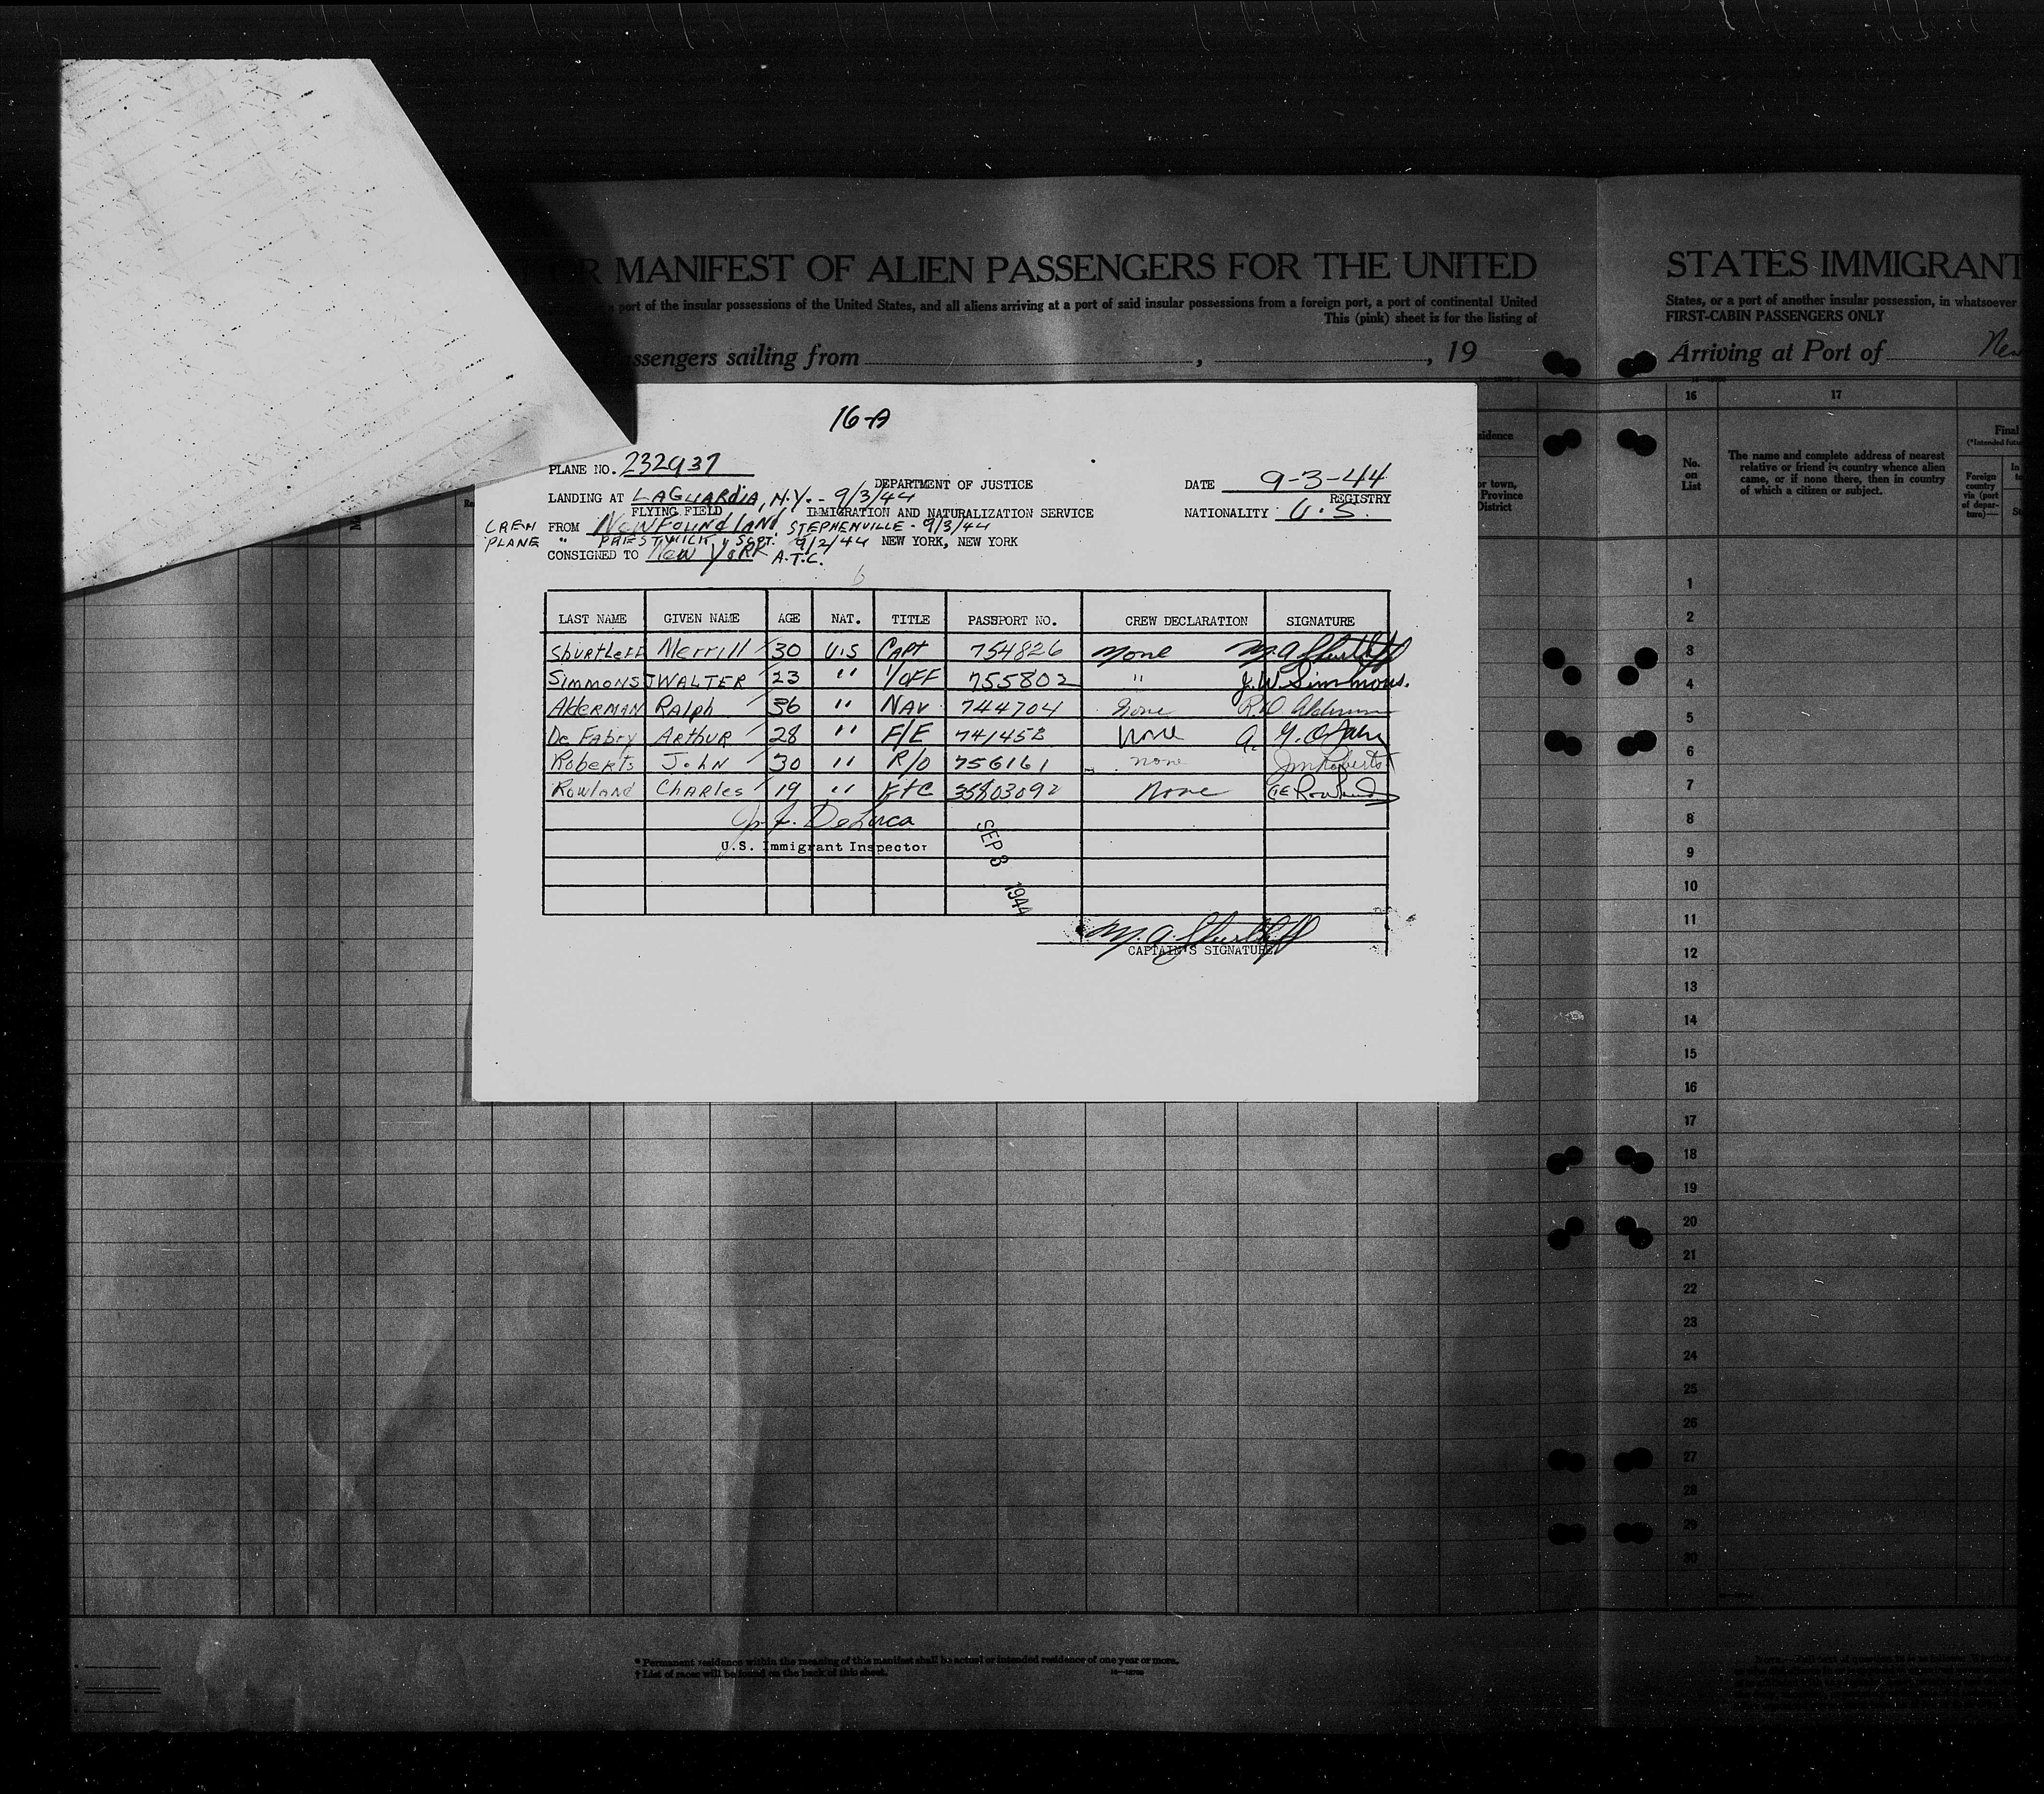 OR MANIFEST OF ALIEN PASSENGERS FOR THE UNITED
STATES IMMIGRANT
a port of the insular possessions of the United States, and all aliens arriving at a port of said insular possessions from a foreign port, a port of continental United
States, or a port of another insular possession, in whatsoever
This (pink) sheet is for the listing of
FIRST-CABIN PASSENGERS ONLY
assengers sailing from , , 19
Arriving at Port of New
16 17
sidence
Final
No. on List
The name and complete address of nearest
relative or friend in country whence alien
came, or if none there, then in country
of which a citizen or subject.
or town,
Province
District
Foreign
country
via (port
of depar-
ture)—
16-A
PLANE NO. 232937
DEPARTMENT OF JUSTICE
DATE 9-3-44
LANDING AT LAGUARDIA, N.Y. - 9/3/44
FLYING FIELD
REGISTRY
IMMIGRATION AND NATURALIZATION SERVICE
NATIONALITY U.S.
CREW FROM NEWFOUNDLAND STEPHENVILLE - 9/3/44
PLANE " PRESTWICK, SCOT. 9/2/44 NEW YORK, NEW YORK
CONSIGNED TO NEW YORK A.T.C.
6
LAST NAME GIVEN NAME AGE NAT. TITLE PASSPORT NO. CREW DECLARATION SIGNATURE
Shurtleff Merrill 30 U.S Capt 754826 None M.A. Shurtleff
SIMMONS J WALTER 23 " 1/OFF 755802 " J.W. Simmons.
Alderman Ralph 36 " NAV 744704 none R.D. Alderman
De Fabry Arthur 28 " F/E 741458 None
Roberts John 30 " R/O 756161 none Jm Roberts
Rowland Charles 19 " FTC 35803092 None CE Rowland
J. DeLuca
U.S. Immigrant Inspector
SEP 3 1944
M.A. Shurtleff
CAPTAIN'S SIGNATURE
1
2
3
4
5
6
7
8
9
10
11
12
13
14
15
16
17
18
19
20
21
22
23
24
25
26
27
28
29
30
* Permanent residence within the meaning of this manifest shall be actual or intended residence of one year or more.
† List of races will be found on the back of this sheet.